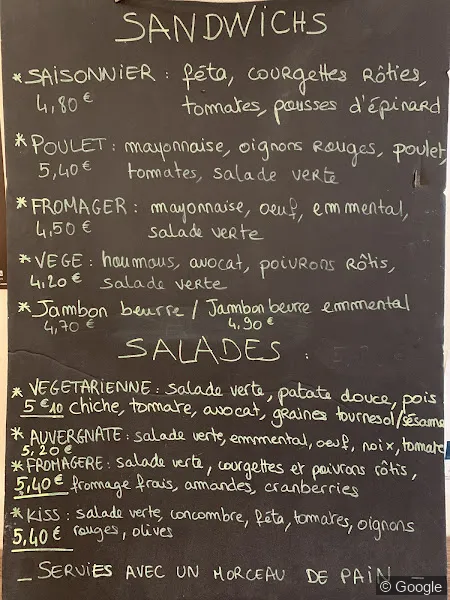 SANDWICHS
* SAISONNIER : féta, courgettes Rôties,
4,80 € tomates, pousses d'épinard
* POULET : mayonnaise, oignons Rouges, poulet,
5,40 € tomates, salade verte
* FROMAGER : mayonnaise, oeuf, emmental,
4,50 € salade verte
* VEGE : houmous, avocat, poivrons Rôtis,
4,20 € salade verte
* Jambon beurre / Jambon beurre emmental
4,70 € 4,90 €
SALADES :
* VEGETARIENNE : salade verte, patate douce, pois
5 € 10 chiche, tomate, avocat, graines tournesol/sésame
* AUVERGNATE : salade verte, emmental, oeuf, noix, tomate
5,20 €
* FROMAGERE : salade verte, courgettes et poivrons rôtis,
5,40 € fromage frais, amandes, cranberries
* KISS : salade verte, concombre, féta, tomates, oignons
5,40 € rouges, olives
_ SERVIES AVEC UN MORCEAU DE PAIN _
© Google